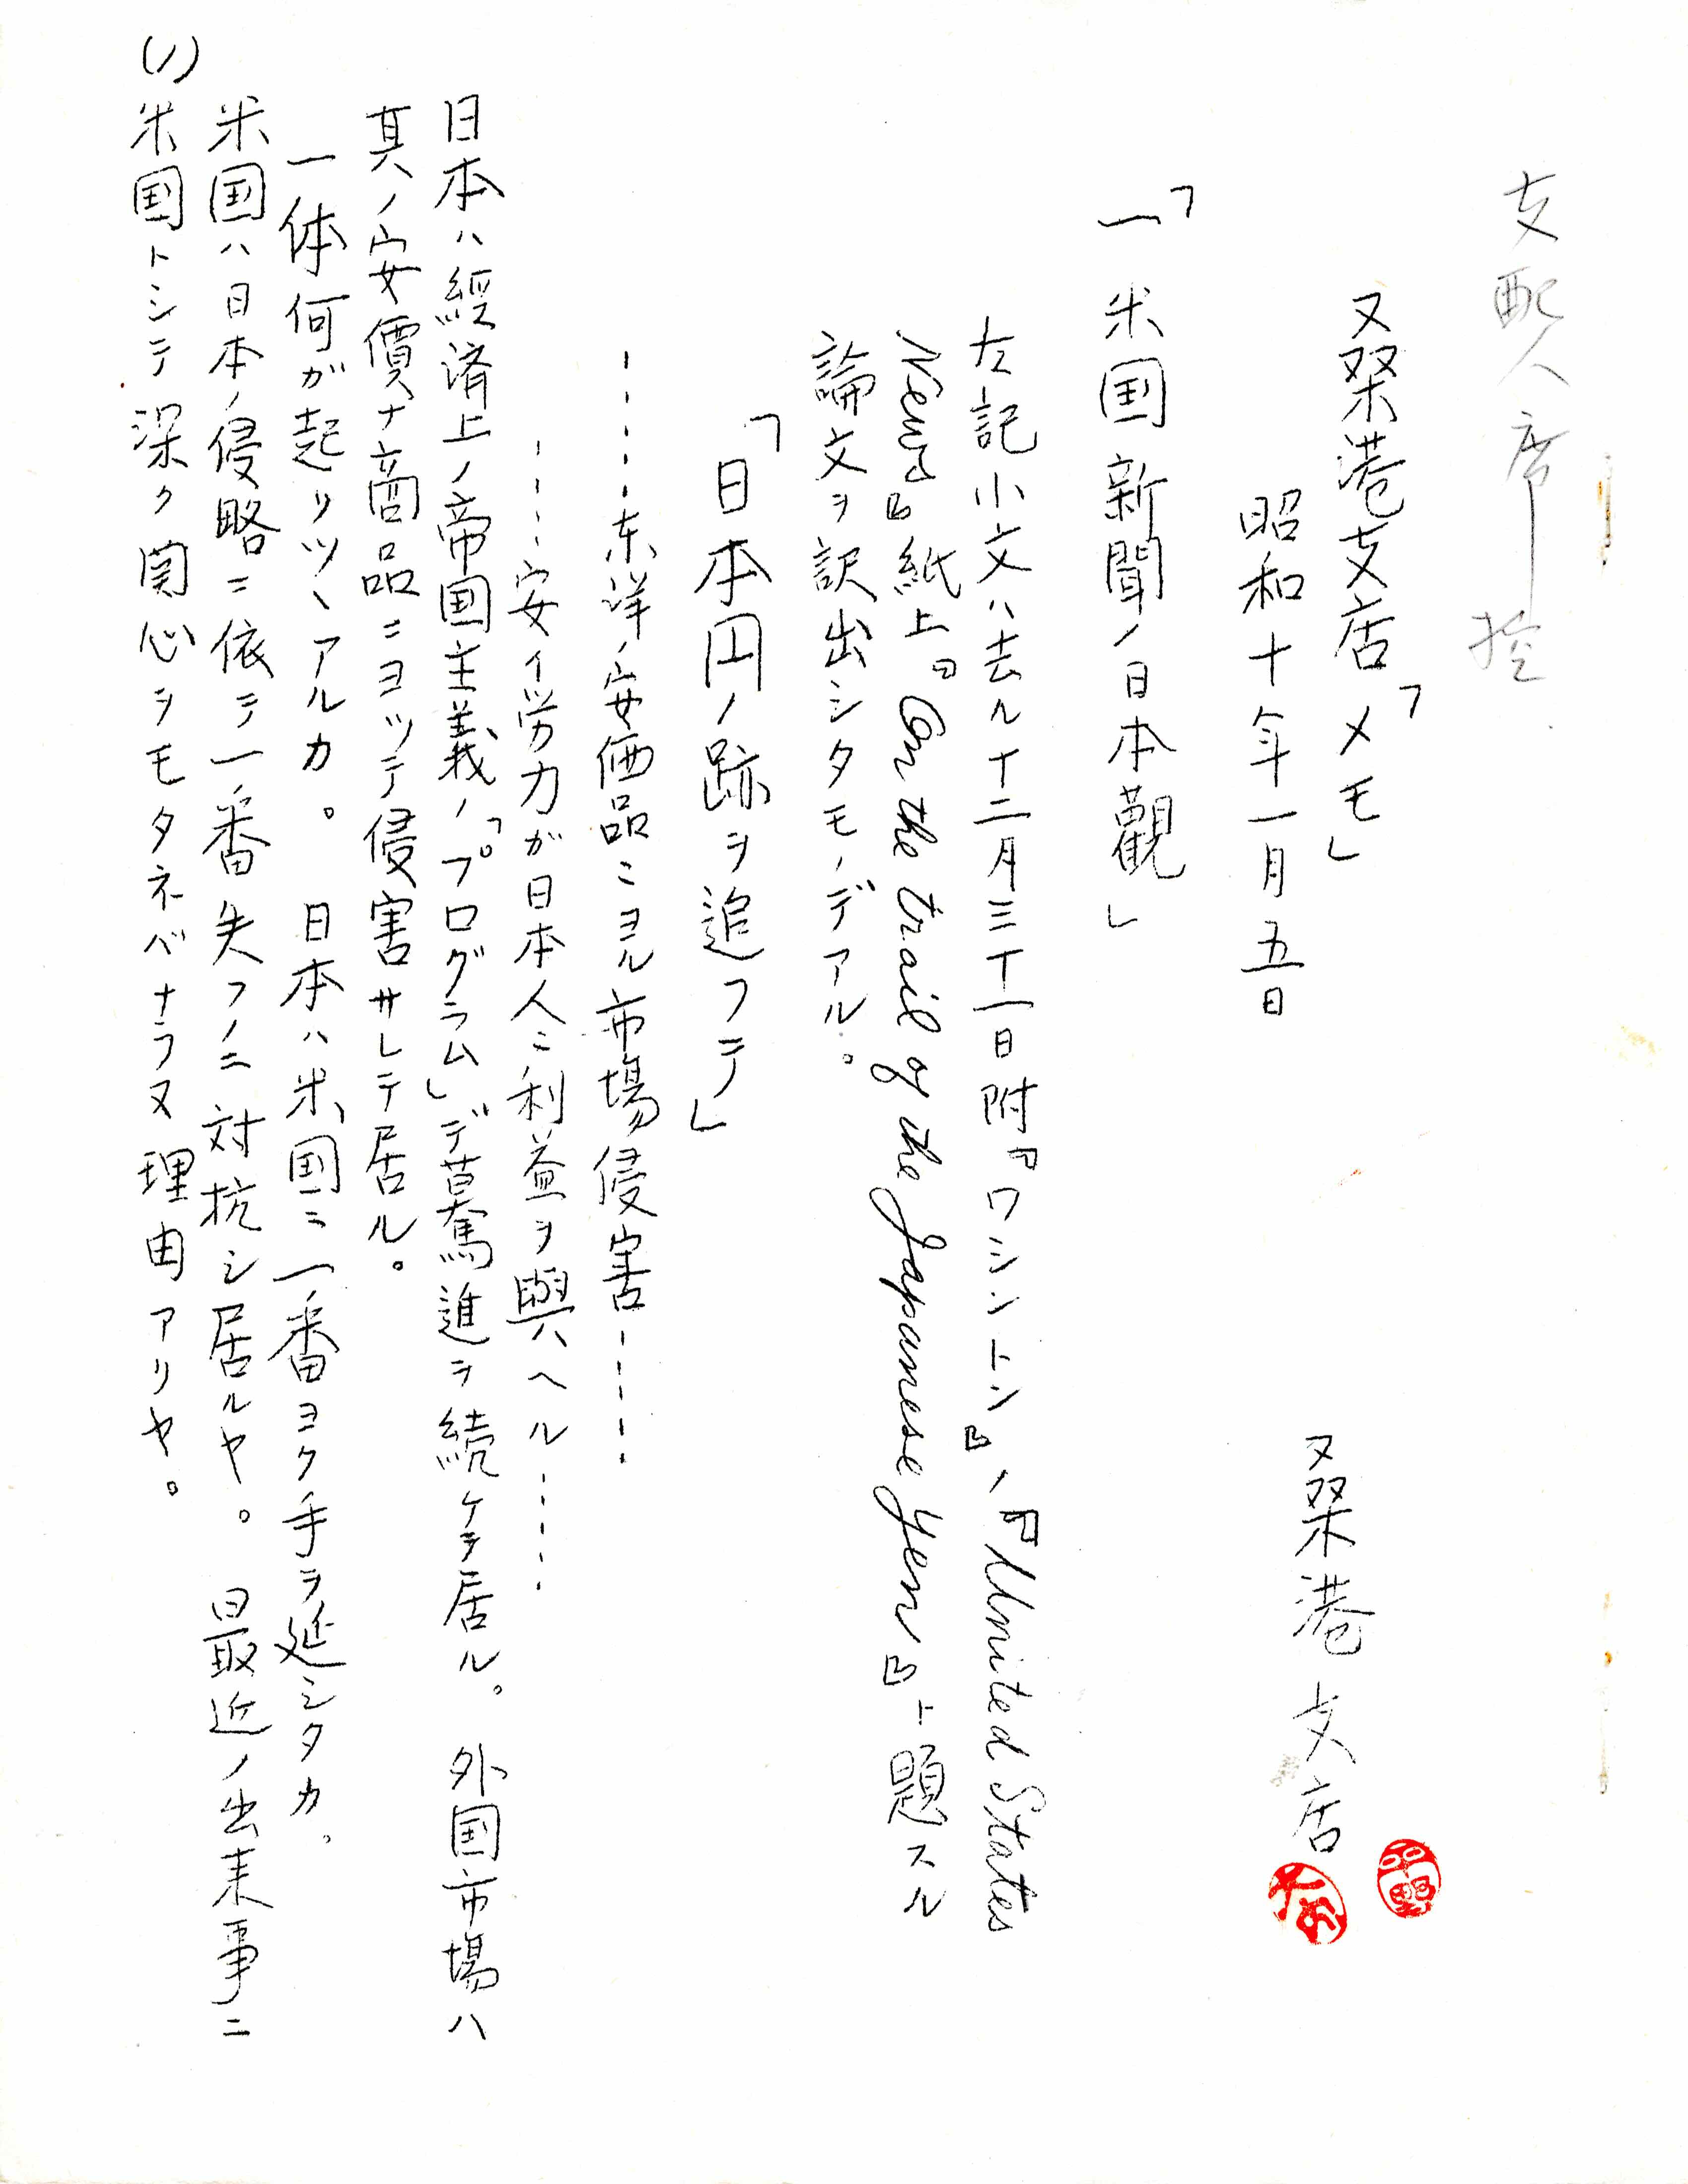 支配人席 控
桑港支店「メモ」
昭和十年一月五日
桑港支店
平野
「一 米国新聞ノ日本觀」
左記小文ハ去ル十二月三十一日附『ワシントン』、『United States
News』紙上『On the trail of the Japanese Yen』ト題スル
論文ヲ訳出シタモノデアル。
「日本円ノ跡ヲ追フテ」
-----東洋ノ安価品ニヨル市場侵害-----
----安イ労力が日本人ニ利益ヲ與ヘル-----
日本ハ經済上ノ帝国主義ノ「プログラム」デ驀進ヲ続ケヲ居ル。 外国市場ハ
其ノ安價ナ商品ニヨッテ侵害サレテ居ル。
一体何が起リツヽアルカ。 日本ハ米国ニ一番ヨク手ヲ延シタカ。
米国ハ日本ノ侵略ニ依テ一番失フノニ対抗シ居ルヤ。 最近ノ出来事ニ
米国トシテ深ク関心ヲモタネバナラヌ理由アリヤ。
(1)